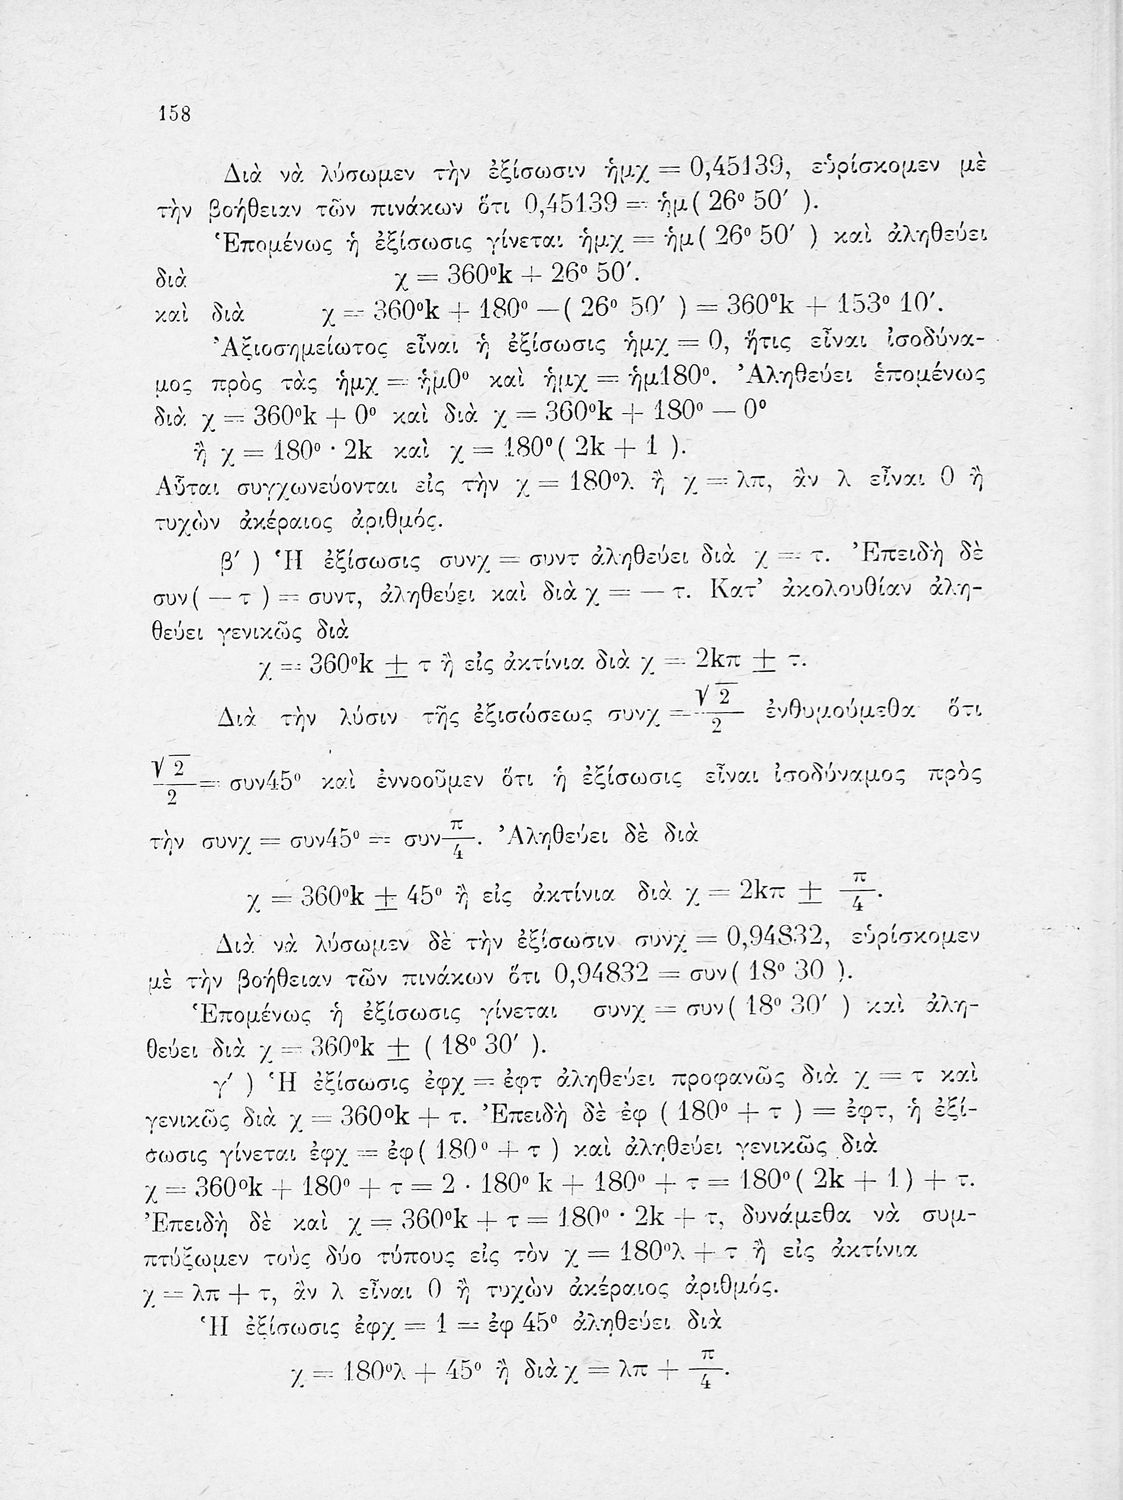 158
Διὰ νὰ λύσωμεν τὴν ἐξίσωσιν ἡμχ = 0,45139, εὑρίσκομεν μὲ
τὴν βοήθειαν τῶν πινάκων ὅτι 0,45139 = ἡμ( 26° 50′ ).
Ἑπομένως ἡ ἐξίσωσις γίνεται ἡμχ = ἡμ( 26° 50′ ) καὶ ἀληθεύει
διὰ χ = 360°k + 26° 50′.
καὶ διὰ χ = 360°k + 180° — ( 26° 50′ ) = 360°k + 153° 10′.
Ἀξιοσημείωτος εἶναι ἡ ἐξίσωσις ἡμχ = 0, ἥτις εἶναι ἰσοδύνα-
μος πρὸς τὰς ἡμχ = ἡμ0° καὶ ἡμχ = ἡμ180°. Ἀληθεύει ἑπομένως
διὰ χ = 360°k + 0° καὶ διὰ χ = 360°k + 180° — 0°
ἢ χ = 180° · 2k καὶ χ = 180°( 2k + 1 ).
Αὗται συγχωνεύονται εἰς τὴν χ = 180°λ ἢ χ = λπ, ἂν λ εἶναι 0 ἢ
τυχὼν ἀκέραιος ἀριθμός.
β′ ) Ἡ ἐξίσωσις συνχ = συντ ἀληθεύει διὰ χ = τ. Ἐπειδὴ δὲ
συν( — τ ) = συντ, ἀληθεύει καὶ διὰ χ = — τ. Κατ’ ἀκολουθίαν ἀλη-
θεύει γενικῶς διὰ
χ = 360°k ± τ ἢ εἰς ἀκτίνια διὰ χ = 2kπ ± τ.
Διὰ τὴν λύσιν τῆς ἐξισώσεως συνχ = √2/2 ἐνθυμούμεθα ὅτι
√2/2 = συν45° καὶ ἐννοοῦμεν ὅτι ἡ ἐξίσωσις εἶναι ἰσοδύναμος πρὸς
τὴν συνχ = συν45° = συν π/4. Ἀληθεύει δὲ διὰ
χ = 360°k ± 45° ἢ εἰς ἀκτίνια διὰ χ = 2kπ ± π/4.
Διὰ νὰ λύσωμεν δὲ τὴν ἐξίσωσιν συνχ = 0,94832, εὑρίσκομεν
μὲ τὴν βοήθειαν τῶν πινάκων ὅτι 0,94832 = συν( 18° 30 ).
Ἑπομένως ἡ ἐξίσωσις γίνεται συνχ = συν( 18° 30′ ) καὶ ἀλη-
θεύει διὰ χ = 360°k ± ( 18° 30′ ).
γ′ ) Ἡ ἐξίσωσις ἐφχ = ἐφτ ἀληθεύει προφανῶς διὰ χ = τ καὶ
γενικῶς διὰ χ = 360°k + τ. Ἐπειδὴ δὲ ἐφ ( 180° + τ ) = ἐφτ, ἡ ἐξί-
σωσις γίνεται ἐφχ = ἐφ( 180° + τ ) καὶ ἀληθεύει γενικῶς διὰ
χ = 360°k + 180° + τ = 2 · 180° k + 180° + τ = 180°( 2k + 1 ) + τ.
Ἐπειδὴ δὲ καὶ χ = 360°k + τ = 180° · 2k + τ, δυνάμεθα νὰ συμ-
πτύξωμεν τοὺς δύο τύπους εἰς τὸν χ = 180°λ + τ ἢ εἰς ἀκτίνια
χ = λπ + τ, ἂν λ εἶναι 0 ἢ τυχὼν ἀκέραιος ἀριθμός.
Ἡ ἐξίσωσις ἐφχ = 1 = ἐφ 45° ἀληθεύει διὰ
χ = 180°λ + 45° ἢ διὰ χ = λπ + π/4.